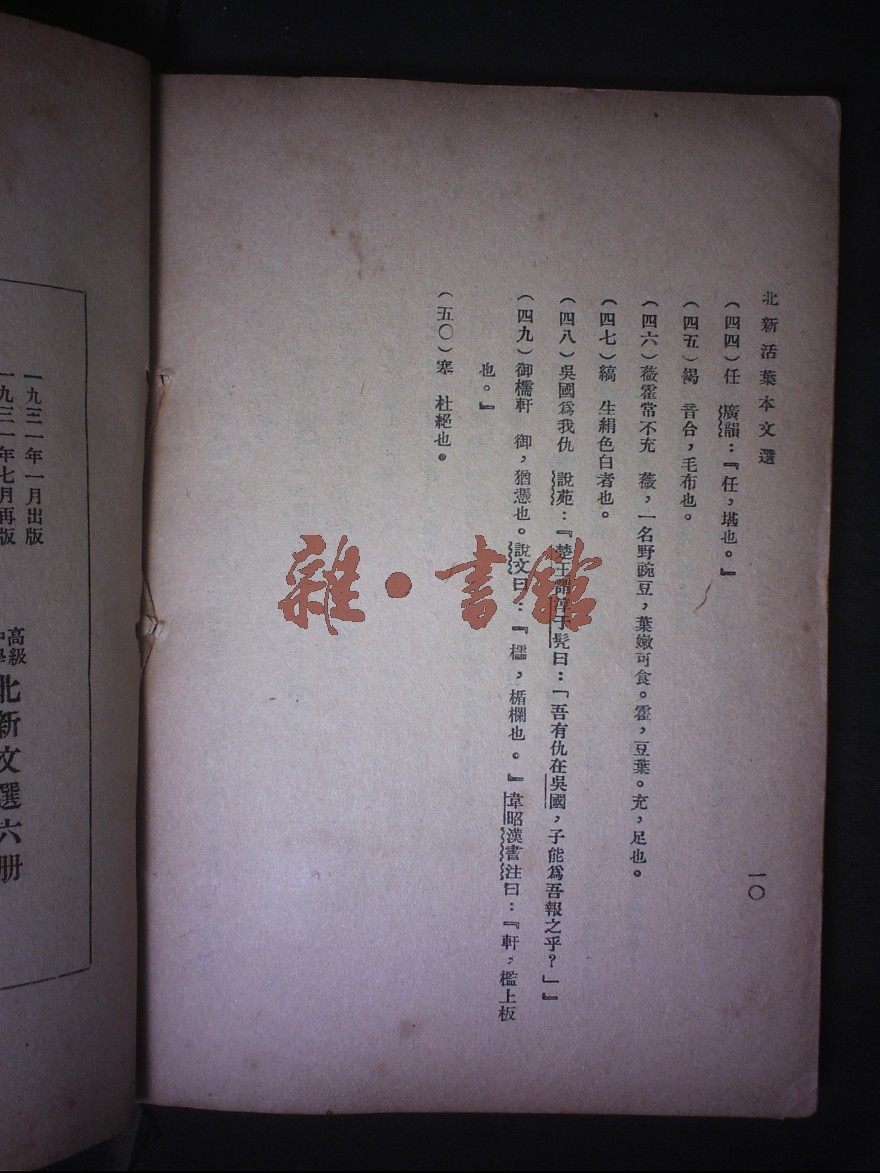 北新活葉本文選
一〇
（四四）任　廣韻：『任，堪也。』
（四五）褐　音合，毛布也。
（四六）薇霍常不充　薇，一名野豌豆，葉嫩可食。霍，豆葉。充，足也。
（四七）縞　生絹色白者也。
（四八）吳國爲我仇　說苑：『楚王謂淳于髡曰：「吾有仇在吳國，子能爲吾報之乎？」』
（四九）御櫺軒　御，猶憑也。說文曰：『櫺，楯欄也。』韋昭漢書注曰：『軒，檻上板
也。』
（五〇）塞　杜絕也。
雜·書館
一九三一年一月出版
一九三一年七月再版
高級
北新文選六册